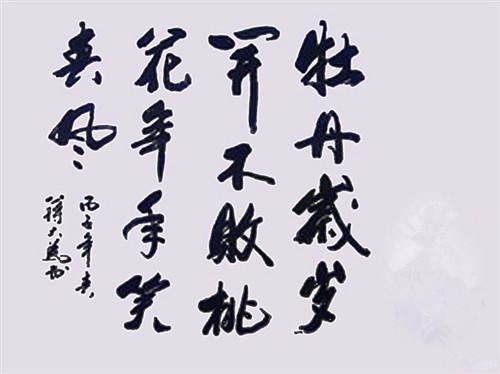 牡丹岁岁
开不败桃
花年年笑
春风
丙子年春
蒋大为书